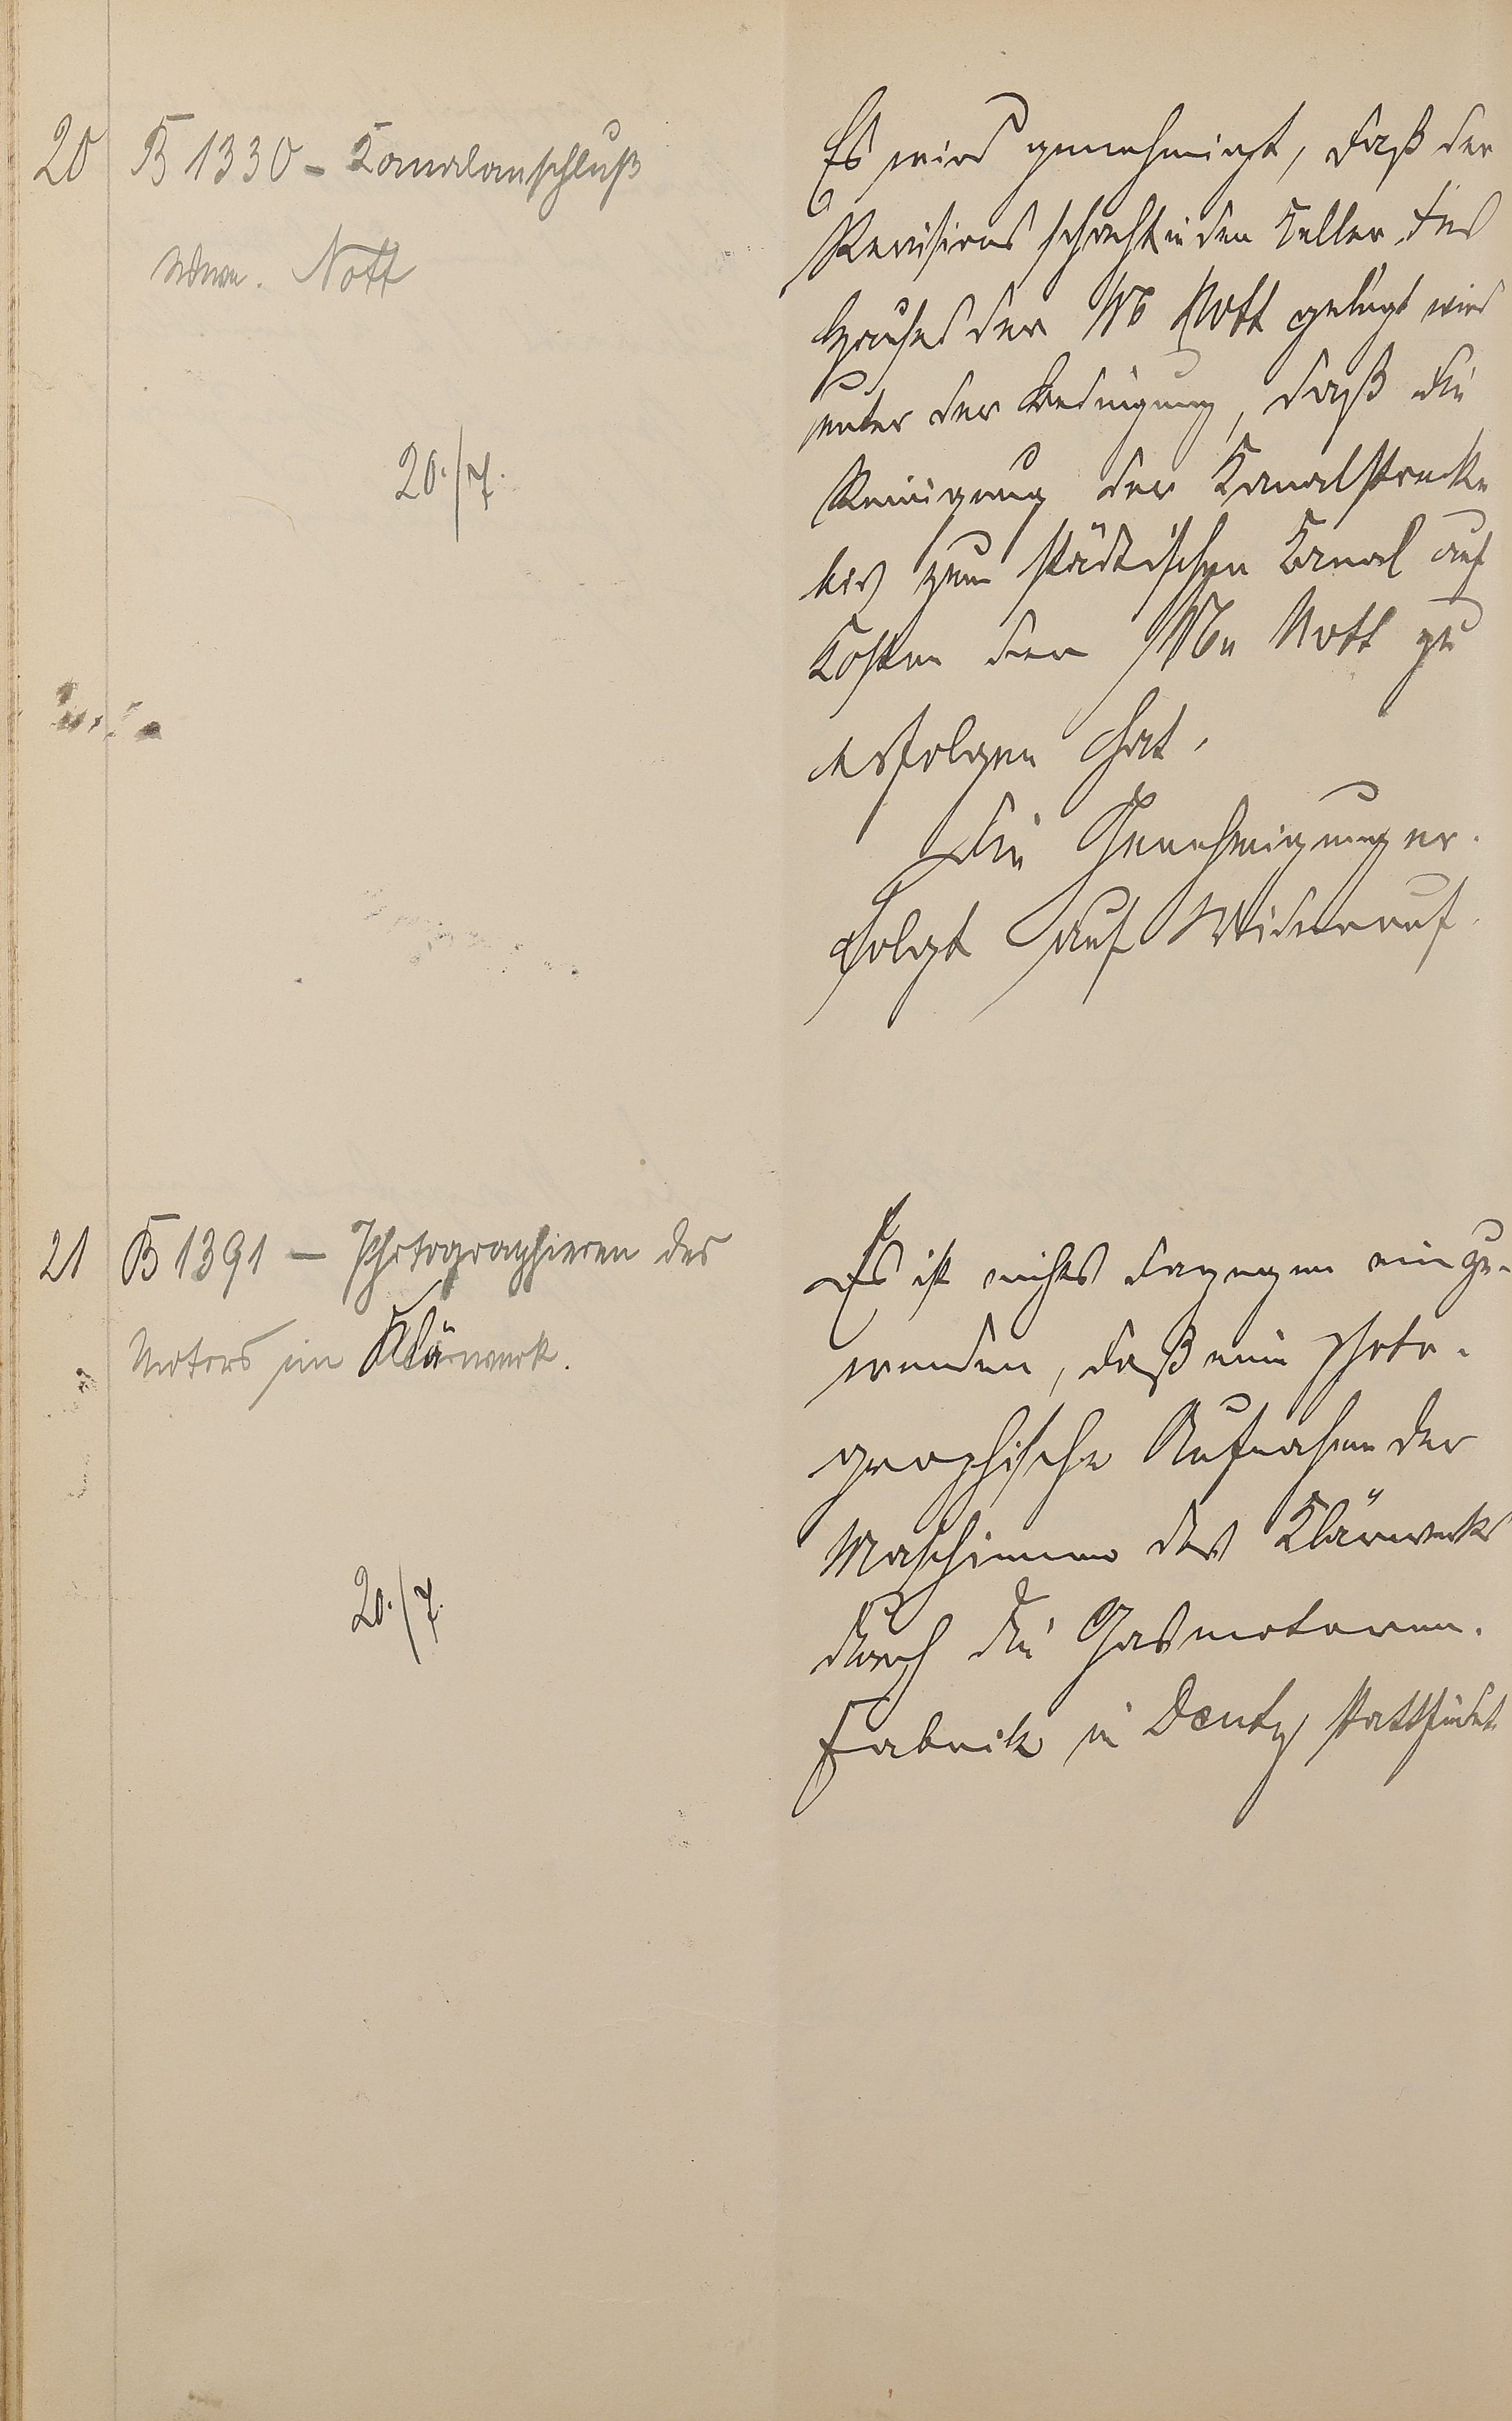 20 B 1330 - Kanalanschluß
Wwe. Nott
20./7.
Es wird genehmigt, daß der
Revisionsschacht in den Keller des
Hauses der Ww Nott gelegt wird
unter der Bedingung, daß die
Reinigung der Kanalstrecke
bis zum städtischen Kanal auf
Kosten der Ww Nott zu
erfolgen hat.
Die Genehmigung er-
folgt auf Widerruf.
21 B 1391 - Photographieren des
Motors im Klärwerk.
20./7.
Es ist nichts dagegen einzu-
wenden, daß eine photo-
graphische Aufnahme der
Maschinen des Klärwerks
durch die Gasmotoren-
Fabrik in Deutz stattfindet